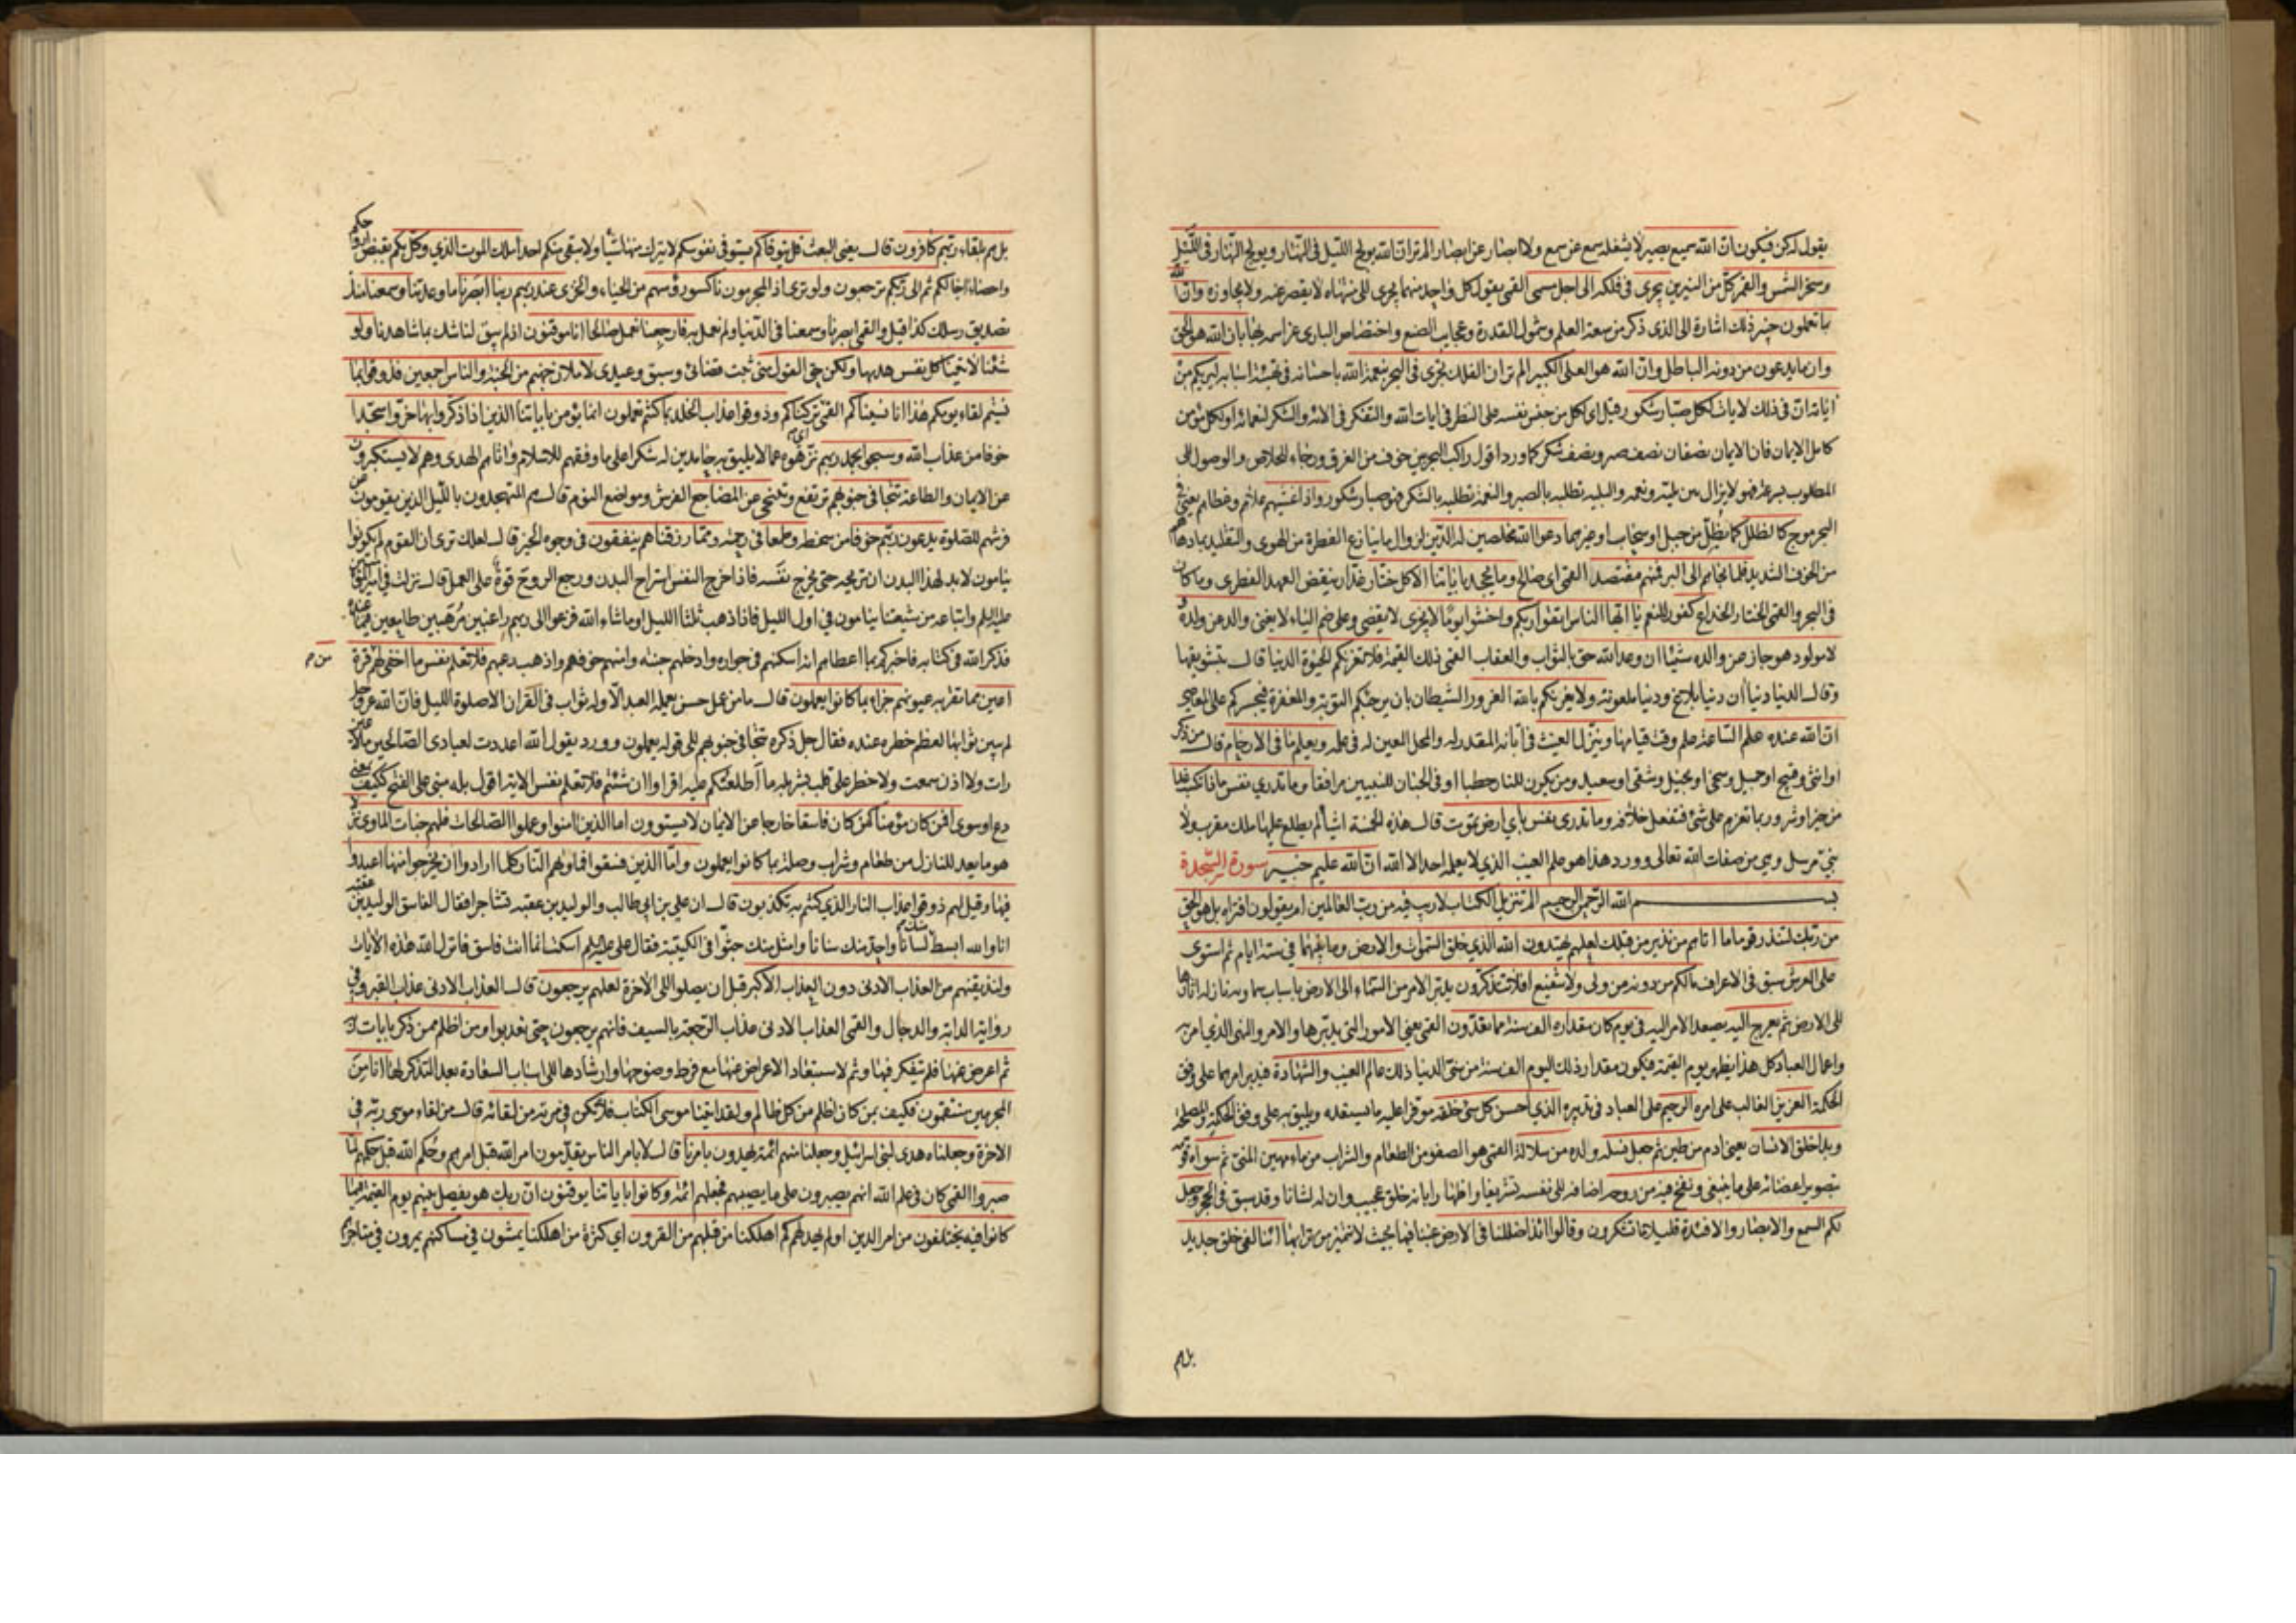 يقول له كن فيكون ان الله سميع بصير لا يشغله سمع عن سمع ولا ابصار عن ابصار الم تر ان الله يولج الليل في النهار ويولج النهار في الليل
وسخر الشمس والقمر كل من النيرين يجري في فلكه الى اجل مسمى القمي يقول كل واحد منهما يجري الى منتهاه لا يقصر عنه ولا يجاوزه وان الله
بما تعملون خبير ذلك اشارة الى الذي ذكر من سعة العلم وشمول القدرة وعجايب الصنع واختصاص الباري عز اسمه بها بان الله هو الحق
وان ما يدعون من دونه الباطل وان الله هو العلي الكبير الم تر ان الفلك تجري في البحر بنعمة الله باحسانه في تهيئة اسبابه ليريكم من
اياته ان في ذلك لايات لكل صبار شكور قيل اي لكل من حبس نفسه على النظر في ايات الله والتفكر في الائه والشكر لنعمائه او لكل مؤمن
كامل الايمان فان الايمان نصفان نصف صبر ونصف شكر كما ورد اقول راكب البحر بين خوف من الغرق ورجاء للخلاص والوصول الى
المطلوب فهو لا يزال بين بلية ونعمة والبلية تطلبه بالصبر والنعمة تطلبه بالشكر فهو صبار شكور واذا غشيهم علاهم وغطاهم يعني في
البحر موج كالظلل كما يظل من جبل او سحاب او غيرهما دعوا الله مخلصين له الدين لزوال ما ينازع الفطرة من الهوى والتقليد بما دهاهم
من الخوف الشديد فلما نجاهم الى البر فمنهم مقتصد القمي اي صالح وما يجحد باياتنا الا كل ختار غدار ينقض العهد الفطري وما كان
في البحر والقمي الختار الخداع كفور للنعم يا ايها الناس اتقوا ربكم واخشوا يوما لا يجزي لا يقضي وعلى ضم الياء لا يغني والد عن ولده و
لا مولود هو جاز عن والده شيئا ان وعد الله حق بالثواب والعقاب القمي ذلك القيمة فلا تغرنكم الحيوة الدنيا قال
وقال الدنيا دنياان دنيا بلاغ ودنيا ملعونة ولا يغرنكم بالله الغرور الشيطان بان يرجيكم التوبة والمغفرة فيجسركم على المعاصي
ان الله عنده علم الساعة علم وقت قيامها وينزل الغيث في ابانه المقدر له والمحل المعين له في علمه ويعلم ما في الارحام قال من ذكر
او انثى وقبيح او جميل وسخي او بخيل وشقي او سعيد ومن يكون للنار حطبا او في الجنان للنبيين مرافقا وما تدري نفس ماذا تكسب غدا
من خير او شر وربما تعزم على شئ فتفعل خلافه وما تدري نفس باي ارض تموت قال هذه الخمسة اشياء لم يطلع عليها ملك مقرب ولا
نبي مرسل وهي من صفات الله تعالى وورد هذا هو علم الغيب الذي لا يعلمه احد الا الله ان الله عليم خبير سورة السجدة
بسم الله الرحمن الرحيم الم تنزيل الكتاب لا ريب فيه من رب العالمين ام يقولون افتراه بل هو الحق
من ربك لتنذر قوما ما اتاهم من نذير من قبلك لعلهم يهتدون الله الذي خلق السموات والارض وما بينهما في ستة ايام ثم استوى
على العرش سبق في الاعراف ما لكم من دونه من ولي ولا شفيع افلا تتذكرون يدبر الامر من السماء الى الارض باسباب سماوية نازلة اثارها
الى الارض ثم يعرج اليه يصعد الامر اليه في يوم كان مقداره الف سنة مما تعدون القمي يعني الامور التي يدبرها والامر والنهي الذي امر به
واعمال العباد كل هذا يظهر يوم القيمة فيكون مقدار ذلك اليوم الف سنة من سني الدنيا ذلك عالم الغيب والشهادة فيدبر امرهما على وفق
الحكمة العزيز الغالب على امره الرحيم على العباد في تدبيره الذي احسن كل شئ خلقه موفرا عليه ما يستعده ويليق به على وفق الحكمة والمصلحة
وبدا خلق الانسان يعني ادم من طين ثم جعل نسله ولده من سلالة القمي هو الصفو من الطعام والشراب من ماء مهين المني ثم سواه قومه
بتصوير اعضائه على ما ينبغي ونفخ فيه من روحه اضافه الى نفسه تشريفا واظهارا بانه خلق عجيب وان له لشانا وقد سبق في الحجر وجعل
لكم السمع والابصار والافئدة قليلا ما تشكرون وقالوا ائذا ضللنا في الارض غبنا فيها بحيث لا نتميز من ترابها ائنا لفي خلق جديد
بل هم
بل هم بلقاء ربهم كافرون قال يعني البعث قل يتوفاكم يستوفي نفوسكم لا يترك منها شيئا ولا يبقي منكم احدا ملك الموت الذي وكل بكم بقبض ارواحكم
واحصاء اجالكم ثم الى ربكم ترجعون ولو ترى اذ المجرمون ناكسوا رؤسهم من الحياء والخزي عند ربهم ربنا ابصرنا ما وعدتنا وسمعنا منك
تصديق رسلك كذا قيل والقمي ابصرنا وسمعنا في الدنيا ولم نعمل به فارجعنا نعمل صالحا انا موقنون اذ لم يبق لنا شك بما شاهدنا ولو
شئنا لاتينا كل نفس هديها ولكن حق القول مني ثبت قضائي وسبق وعيدي لاملئن جهنم من الجنة والناس اجمعين فذوقوا بما
نسيتم لقاء يومكم هذا انا نسيناكم القمي تركناكم وذوقوا عذاب الخلد بما كنتم تعملون انما يؤمن باياتنا الذين اذا ذكروا بها خروا سجدا
خوفا من عذاب الله وسبحوا بحمد ربهم نزهوه عما لا يليق به حامدين له شكرا على ما وفقهم للاسلام واتاهم الهدى وهم لا يستكبرون
عن الايمان والطاعة تتجافى جنوبهم ترتفع وتتنحى عن المضاجع الفرش ومواضع النوم قال هم المتهجدون بالليل الذين يقومون عن
فرشهم للصلوة يدعون ربهم خوفا من سخطه وطمعا في رحمته ومما رزقناهم ينفقون في وجوه الخير قال لعلك ترى ان القوم لم يكونوا
ينامون لا بد لهذا البدن ان تريحه حتى يخرج نفسه فاذا خرج النفس استراح البدن ورجع الروح قوة على العمل قال نزلت في امير المؤمنين
عليه السلم واتباعه من شيعتنا ينامون في اول الليل فاذا ذهب ثلثا الليل او ما شاء الله فزعوا الى ربهم راغبين مرهبين طامعين فيما عنده
فذكر الله في كتابه فاخبركم بما اعطاهم انه اسكنهم في جواره وادخلهم جنته وامنهم خوفهم واذهب رعبهم فلا تعلم نفس ما اخفي لهم من قرة
اعين مما تقر به عيونهم جزاء بما كانوا يعملون قال ما من عمل حسن يعمله العبد الا وله ثواب في القران الا صلوة الليل فان الله عز وجل
لم يبين ثوابها لعظم خطره عنده فقال جل ذكره تتجافى جنوبهم الى قوله يعملون وورد يقول الله اعددت لعبادي الصالحين ما لا عين
رات ولا اذن سمعت ولا خطر على قلب بشر بله ما اطلعتكم عليه اقراوا ان شئتم فلا تعلم نفس الاية اقول بله مبني على الفتح ككيف يعني
دع او سوى افمن كان مؤمنا كمن كان فاسقا خارجا عن الايمان لا يستوون اما الذين امنوا وعملوا الصالحات فلهم جنات الماوى نزلا
هو ما يعد للنازل من طعام وشراب وصلة بما كانوا يعملون واما الذين فسقوا فماويهم النار كلما ارادوا ان يخرجوا منها اعيدوا
فيها وقيل لهم ذوقوا عذاب النار الذي كنتم به تكذبون قال ان علي بن ابي طالب والوليد بن عقبة تشاجرا فقال الفاسق الوليد بن عقبة
انا والله ابسط منك لسانا واحد منك سنانا وامثل منك جثوا في الكتيبة فقال علي عليه السلم اسكت انما انت فاسق فانزل الله هذه الايات
ولنذيقنهم من العذاب الادنى دون العذاب الاكبر قبل ان يصلوا الى الاخرة لعلهم يرجعون قال العذاب الادنى عذاب القبر وفي
رواية الدابة والدجال والقمي العذاب الادنى عذاب الرجعة بالسيف فانهم يرجعون حتى يعذبوا ومن اظلم ممن ذكر بايات ربه
ثم اعرض عنها فلم يتفكر فيها وثم لاستبعاد الاعراض عنها مع فرط وضوحها وارشادها الى اسباب السعادة بعد التذكير بها انا من
المجرمين منتقمون فكيف بمن كان اظلم من كل ظالم ولقد اتينا موسى الكتاب فلا تكن في مرية من لقائه قال من لقاء موسى ربه في
الاخرة وجعلناه هدى لبني اسرائيل وجعلنا منهم ائمة يهدون بامرنا قال لا بامر الناس يقدمون امر الله قبل امرهم وحكم الله قبل حكمهم لما
صبروا القمي كان في علم الله انهم يصبرون على ما يصيبهم فجعلهم ائمة وكانوا باياتنا يوقنون ان ربك هو يفصل بينهم يوم القيمة فيما
كانوا فيه يختلفون من امر الدين اولم يهد لهم كم اهلكنا من قبلهم من القرون اي كثرة من اهلكنا يمشون في مساكنهم يمرون في متاجرهم